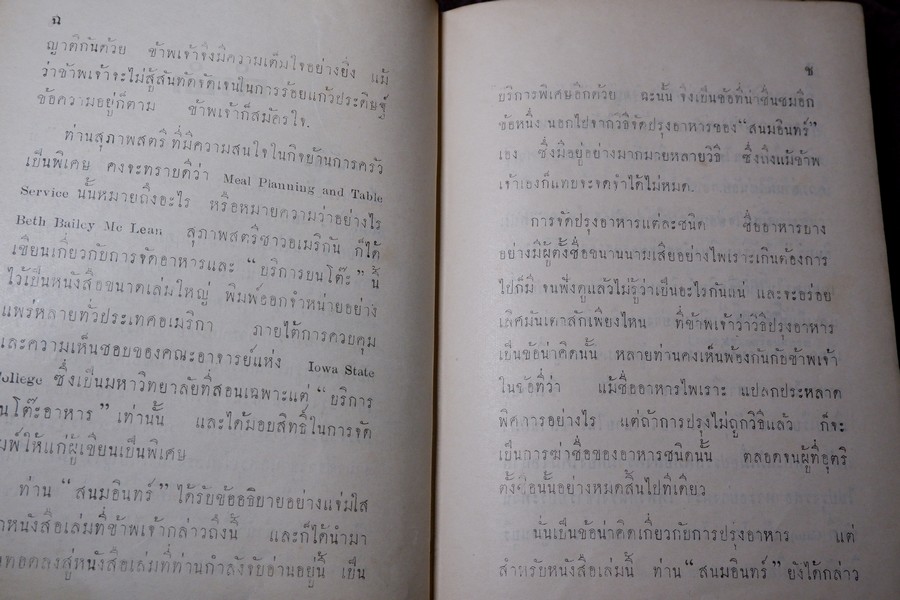 ฉ
ญาติกันด้วย ข้าพเจ้าจึงมีความเต็มใจอย่างยิ่ง แม้
ว่าข้าพเจ้าจะไม่สู้สันทัดจัดเจนในการร้อยแก้วประดิษฐ์
ข้อความอยู่ก็ตาม ข้าพเจ้าก็สมัครใจ.
ท่านสุภาพสตรี ที่มีความสนใจในกิจบ้านการครัว
เป็นพิเศษ คงจะทราบดีว่า Meal Planning and Table
Service นั้นหมายถึงอะไร หรือหมายความว่าอย่างไร
Beth Bailey Mc Lean สุภาพสตรีชาวอเมริกัน ก็ได้
เขียนเกี่ยวกับการจัดอาหารและ “ บริการบนโต๊ะ ” นี้
ไว้เป็นหนังสือขนาดเล่มใหญ่ พิมพ์ออกจำหน่ายอย่าง
แพร่หลายทั่วประเทศอเมริกา ภายใต้การควบคุม
และความเห็นชอบของคณะอาจารย์แห่ง Iowa State
College ซึ่งเป็นมหาวิทยาลัยที่สอนเฉพาะแต่ “ บริการ
นโต๊ะอาหาร ” เท่านั้น และได้มอบสิทธิ์ในการจัด
มพ์ให้แก่ผู้เขียนเป็นพิเศษ
ท่าน “ สนมอินทร์ ” ได้รับข้ออธิบายอย่างแจ่มใส
หนังสือเล่มที่ข้าพเจ้ากล่าวถึงนี้ และก็ได้นำมา
ทอดลงสู่หนังสือเล่มที่ท่านกำลังจับอ่านอยู่นี้ เป็น
ช
บริการพิเศษอีกด้วย ฉะนั้น จึงเป็นข้อที่น่าชื่นชมอีก
ข้อหนึ่ง นอกไปจากวิธีจัดปรุงอาหารของ “สนมอินทร์”
เอง ซึ่งมีอยู่อย่างมากมายหลายวิธี ซึ่งถึงแม้ข้าพ
เจ้าเองก็แทบจะจดจำได้ไม่หมด.
การจัดปรุงอาหารแต่ละชนิด ชื่ออาหารบาง
อย่างมีผู้ตั้งชื่อขนานนามเสียอย่างไพเราะเกินต้องการ
ไปก็มี จนฟังดูแล้วไม่รู้ว่าเป็นอะไรกันแน่ และจะอร่อย
เลิศมันเตาสักเพียงไหน ที่ข้าพเจ้าว่าวิธีปรุงอาหาร
เป็นข้อน่าคิดนั้น หลายท่านคงเห็นพ้องกันกับข้าพเจ้า
ในข้อที่ว่า แม้ชื่ออาหารไพเราะ แปลกประหลาด
พิศดารอย่างไร แต่ถ้าการปรุงไม่ถูกวิธีแล้ว ก็จะ
เป็นการฆ่าชื่อของอาหารชนิดนั้น ตลอดจนผู้ที่อุตริ
ตั้งชื่อนั้นอย่างหมดสิ้นไปทีเดียว
นั่นเป็นข้อน่าคิดเกี่ยวกับการปรุงอาหาร แต่
สำหรับหนังสือเล่มนี้ ท่าน “สนมอินทร์” ยังได้กล่าว